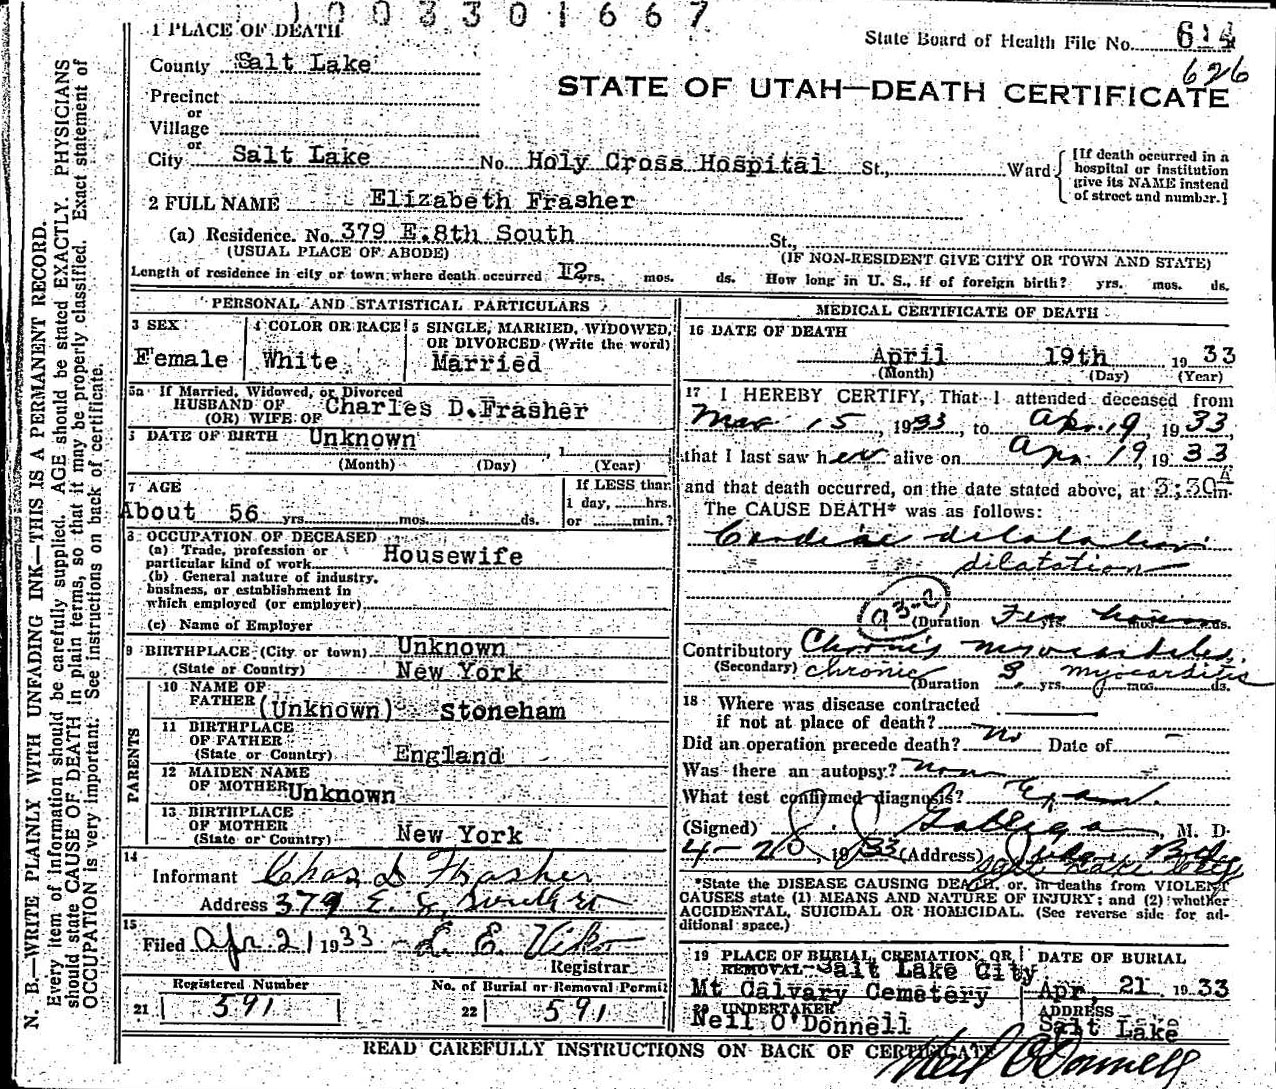 1003301667
1 PLACE OF DEATH
State Board of Health File No. 614
626
County Salt Lake
STATE OF UTAH—DEATH CERTIFICATE
Precinct
or
Village
or
City Salt Lake No. Holy Cross Hospital St., Ward
[If death occurred in a
hospital or institution
give its NAME instead
of street and number.]
2 FULL NAME Elizabeth Frasher
(a) Residence. No. 379 E. 8th South St.,
(USUAL PLACE OF ABODE) (IF NON-RESIDENT GIVE CITY OR TOWN AND STATE)
Length of residence in city or town where death occurred 12 yrs. mos. ds. How long in U. S., if of foreign birth? yrs. mos. ds.
N. B.—WRITE PLAINLY WITH UNFADING INK—THIS IS A PERMANENT RECORD.
Every item of information should be carefully supplied. AGE should be stated EXACTLY. PHYSICIANS
should state CAUSE OF DEATH in plain terms, so that it may be properly classified. Exact statement of
OCCUPATION is very important. See instructions on back of certificate.
PERSONAL AND STATISTICAL PARTICULARS
3 SEX
Female
4 COLOR OR RACE
White
5 SINGLE, MARRIED, WIDOWED,
OR DIVORCED (Write the word)
Married
5a If Married, Widowed, or Divorced
HUSBAND OF
(OR) WIFE OF Charles D. Frasher
DATE OF BIRTH Unknown , 1
(Month) (Day) (Year)
7 AGE
About 56 yrs. mos. ds.
If LESS than
1 day, hrs.
or min.?
8 OCCUPATION OF DECEASED
(a) Trade, profession or
particular kind of work Housewife
(b) General nature of industry,
business, or establishment in
which employed (or employer)
(c) Name of Employer
9 BIRTHPLACE (City or town) Unknown
(State or Country) New York
PARENTS
10 NAME OF
FATHER (Unknown) Stoneham
11 BIRTHPLACE
OF FATHER
(State or Country) England
12 MAIDEN NAME
OF MOTHER Unknown
13 BIRTHPLACE
OF MOTHER
(State or Country) New York
14
Informant Chas D Frasher
Address 379 E. 8 South st
15
Filed Apr 21 1933 L. E. Viko
Registrar
Registered Number
21 591
No. of Burial or Removal Permit
22 591
MEDICAL CERTIFICATE OF DEATH
16 DATE OF DEATH
April 19th 1933
(Month) (Day) (Year)
17 I HEREBY CERTIFY, That I attended deceased from
Mar 15, 1933, to Apr. 19, 1933,
that I last saw her alive on Apr. 19, 1933
and that death occurred, on the date stated above, at 3:30 A m.
The CAUSE DEATH* was as follows:
Cardiac dilatation
dilatation
93-2
(Duration Few yrs. hours mos. ds.
Contributory Chronic myocarditis
(Secondary) chronic myocarditis
(Duration 3 yrs. mos. ds.
18 Where was disease contracted
if not at place of death?
Did an operation precede death? No Date of -
Was there an autopsy? none
What test confirmed diagnosis? Exam.
(Signed) J. J. Galligan, M. D.
4-20, 1933 (Address) Judge Bldg
Salt Lake City
*State the DISEASE CAUSING DEATH, or, in deaths from VIOLENT
CAUSES state (1) MEANS AND NATURE OF INJURY; and (2) whether
ACCIDENTAL, SUICIDAL OR HOMICIDAL. (See reverse side for ad-
ditional space.)
19 PLACE OF BURIAL, CREMATION, OR
REMOVAL Salt Lake City
Mt Calvary Cemetery
DATE OF BURIAL
Apr. 21 1933
UNDERTAKER
Neil O'Donnell
ADDRESS
Salt Lake
READ CAREFULLY INSTRUCTIONS ON BACK OF CERTIFICATE
Neil O'Donnell